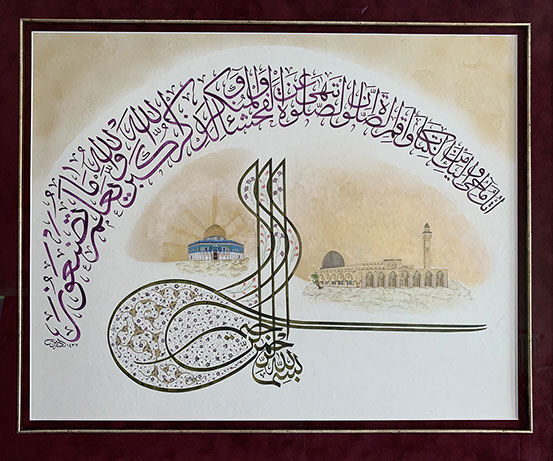 اتل ما أوحي إليك من الكتاب وأقم الصلوة إن الصلوة تنهى عن الفحشاء والمنكر ولذكر الله أكبر والله يعلم ما تصنعون
بسم الله الرحمن الرحيم